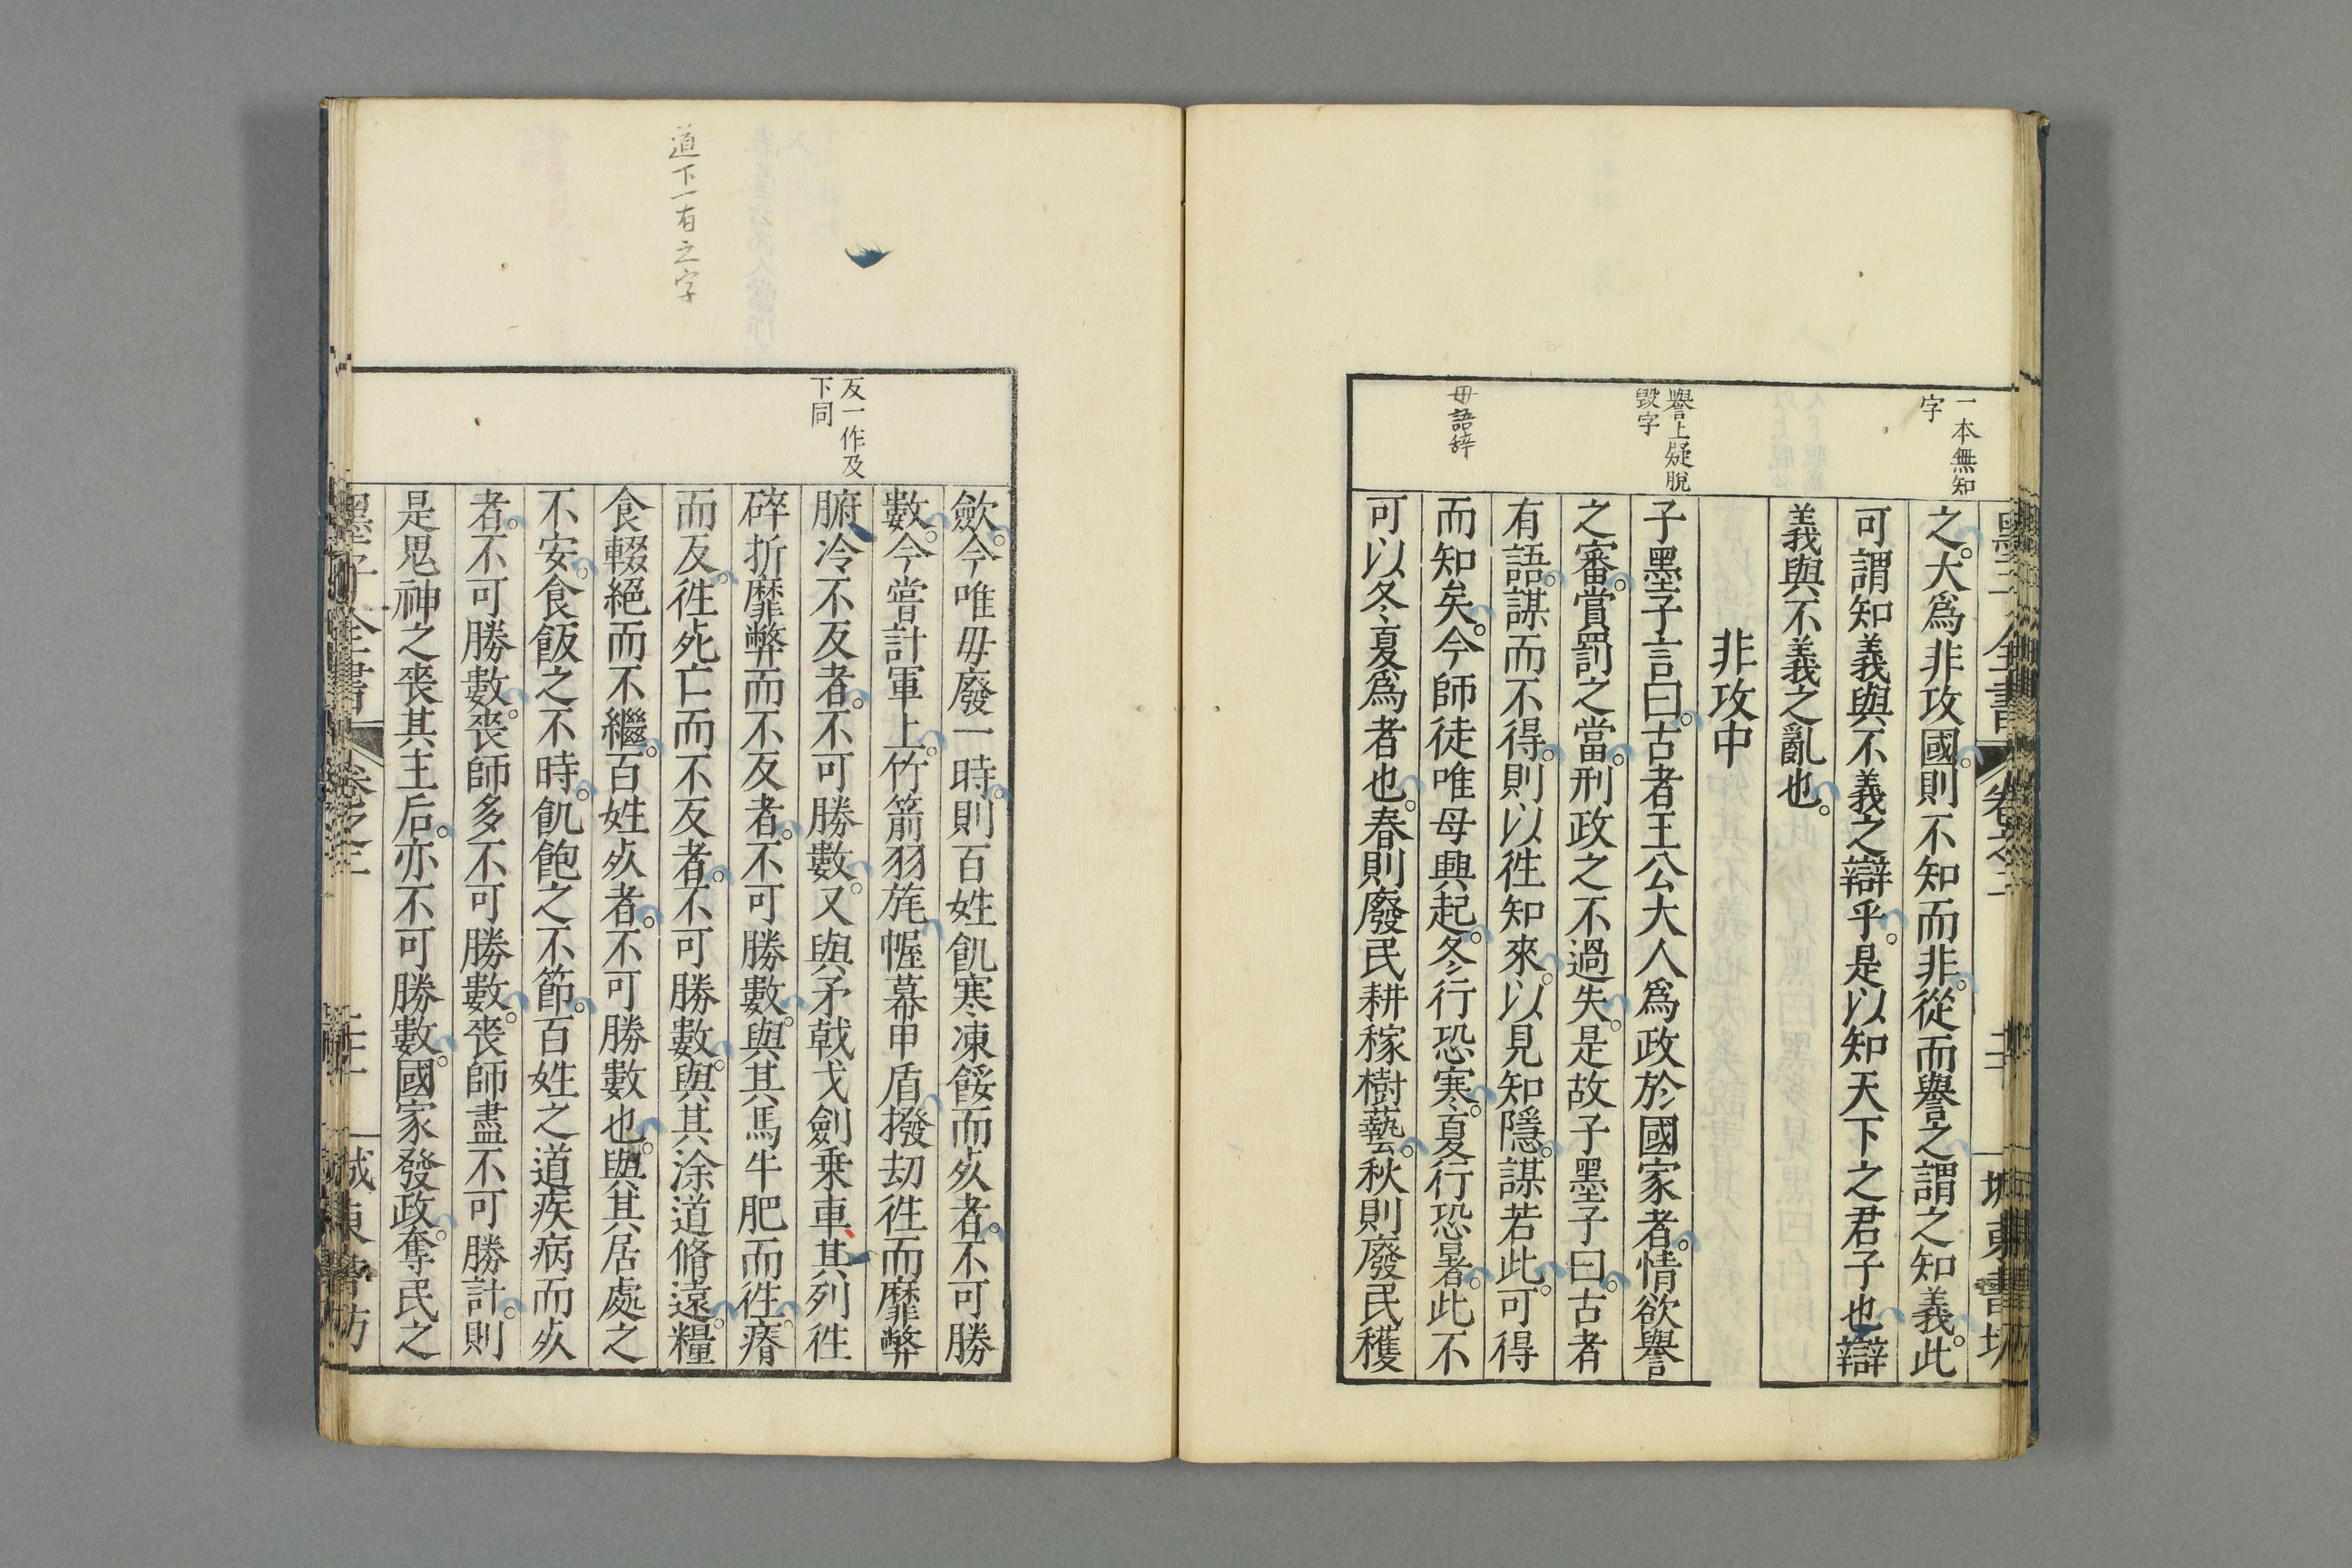 一本無知
字
之。大爲非攻國。則不知而非。從而譽之。謂之知義。此
可謂知義與不義之辯乎。是以知天下之君子也。辯
義與不義之亂也。
非攻中
譽上疑脫
毀字
子墨子言曰。古者王公大人爲政於國家者。情欲譽
之審。賞罰之當。刑政之不過失。是故子墨子曰。古者
有語。謀而不得。則以徃知來。以見知隱。謀若此。可得
毋語辞
而知矣。今師徒唯毋興起。冬行恐寒。夏行恐暑。此不
可以冬夏爲者也。春則廢民耕稼樹藝。秋則廢民穫
歛。今唯毋廢一時。則百姓飢寒凍餒而死者。不可勝
數。今嘗計軍上。竹箭羽旄幄幕甲盾撥刧徃而靡弊
反一作及
下同
腑冷不反者。不可勝數。又與矛戟戈劍乗車其列徃
碎折靡弊而不反者。不可勝數。與其馬牛肥而徃。瘠
道下一有之字
而反。徃死亡而不反者。不可勝數。與其涂道脩遠。糧
食輟絕而不繼。百姓死者。不可勝數也。與其居處之
不安。食飯之不時。飢飽之不節。百姓之道疾病而死
者。不可勝數。喪師多不可勝數。喪師盡不可勝計。則
是鬼神之喪其主后。亦不可勝數。國家發政。奪民之